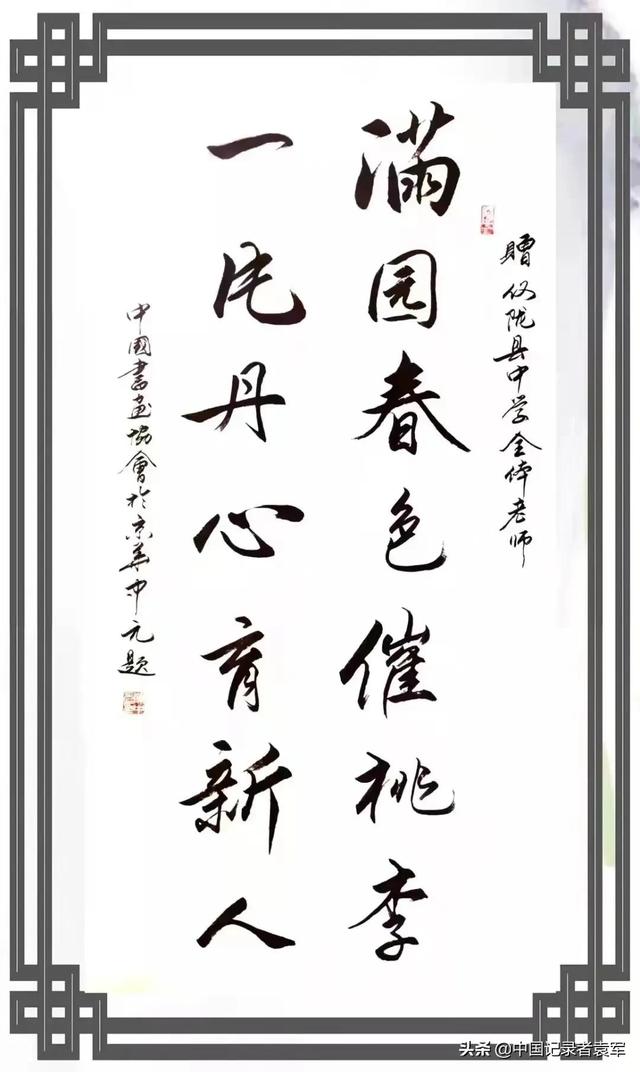 赠仪陇县中学全体老师
满园春色催桃李
一片丹心育新人
中国書画協會於京姜中元题
头条 @中国记录者袁军